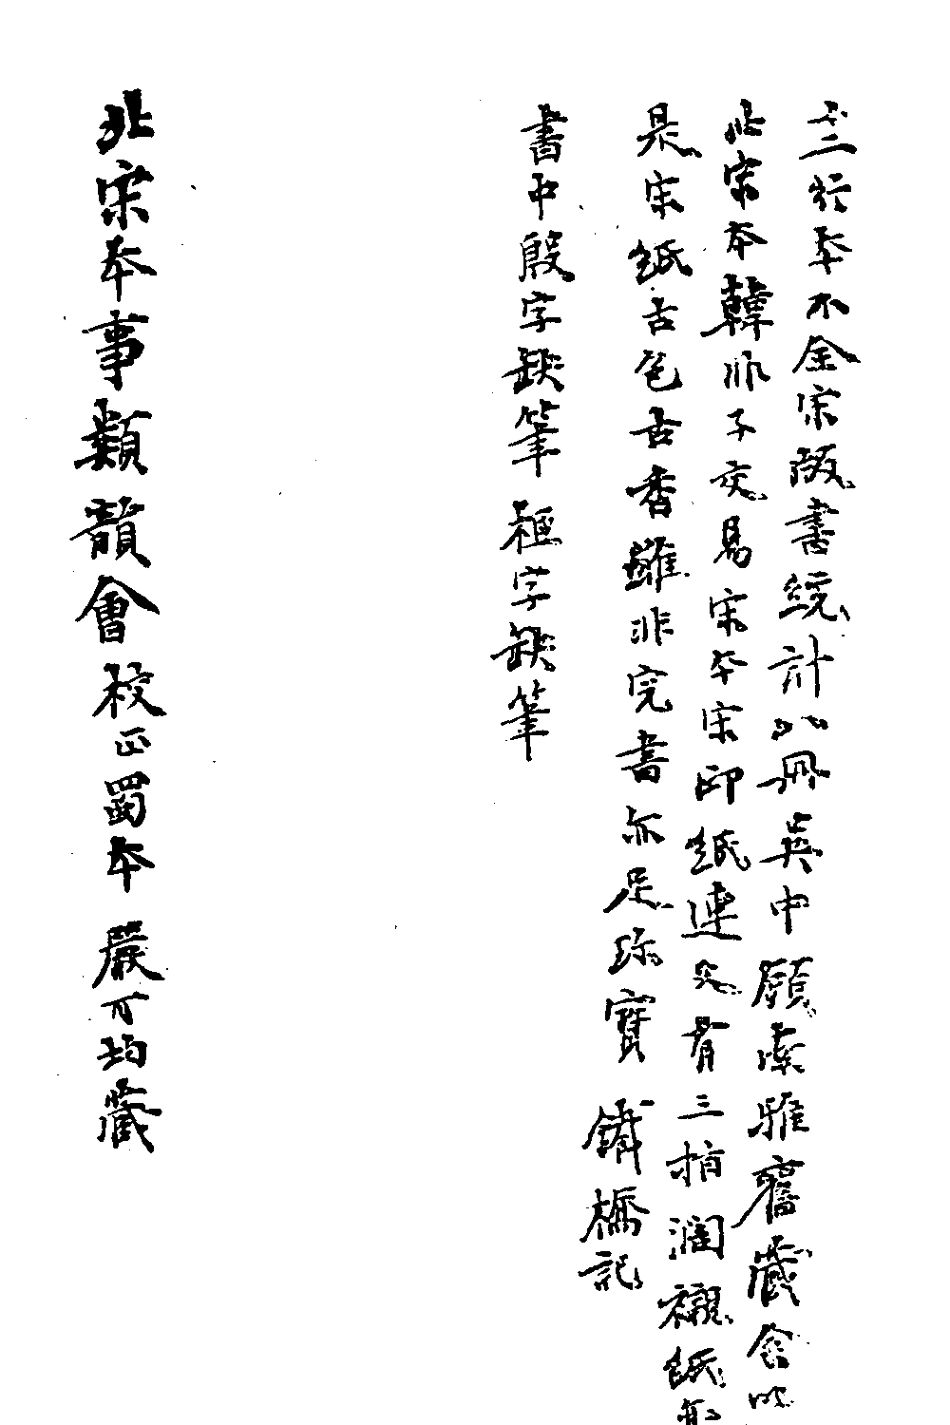 三行本不全宋版書統計八冊吳中顧南雅舊藏余以
北宋本韓非子交易宋本宋印紙連文有三指潤襯紙亦
是宋紙古色古香雖非完書亦足珍寶 鐵橋記
書中殷字缺筆 柩字缺筆
北宋本事類韻會校正蜀本 嚴可均藏